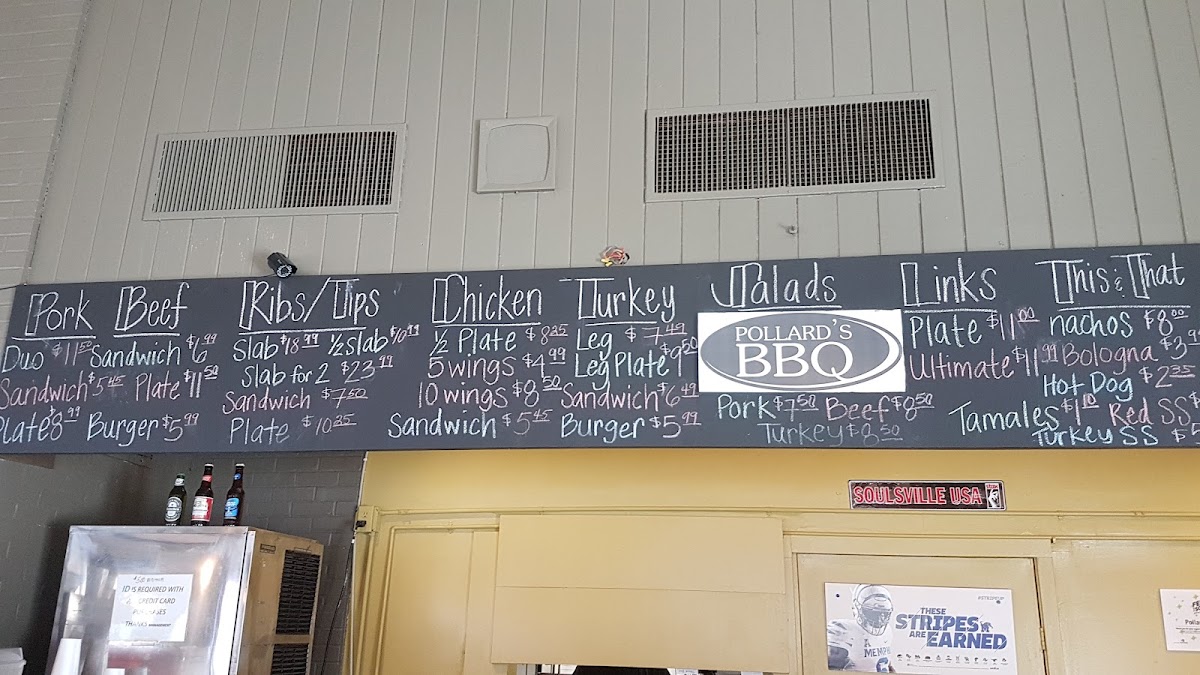 Pork
Duo $11.50
Sandwich $5.45
Plate $8.99
Beef
Sandwich $6.99
Plate $11.50
Burger $5.99
Ribs/Tips
Slab $18.99 ½ Slab $10.99
Slab for 2 $23.99
Sandwich $7.50
Plate $10.25
Chicken
½ Plate $8.25
5 wings $4.99
10 wings $8.50
Sandwich $5.45
Turkey
Leg $7.49
Leg Plate $9.50
Sandwich $6.49
Burger $5.99
Salads
POLLARD'S
BBQ
Pork $7.50 Beef $8.50
Turkey $8.50
Links
Plate $11.00
Ultimate $11.99
This & That
nachos $8.00
Bologna $3.
Hot Dog $2.35
Tamales $1.10 Red SS $
Turkey SS $5
SOULSVILLE USA
ID IS REQUIRED WITH
CREDIT CARD
THANKS
THESE
STRIPES
ARE EARNED
MEMPH